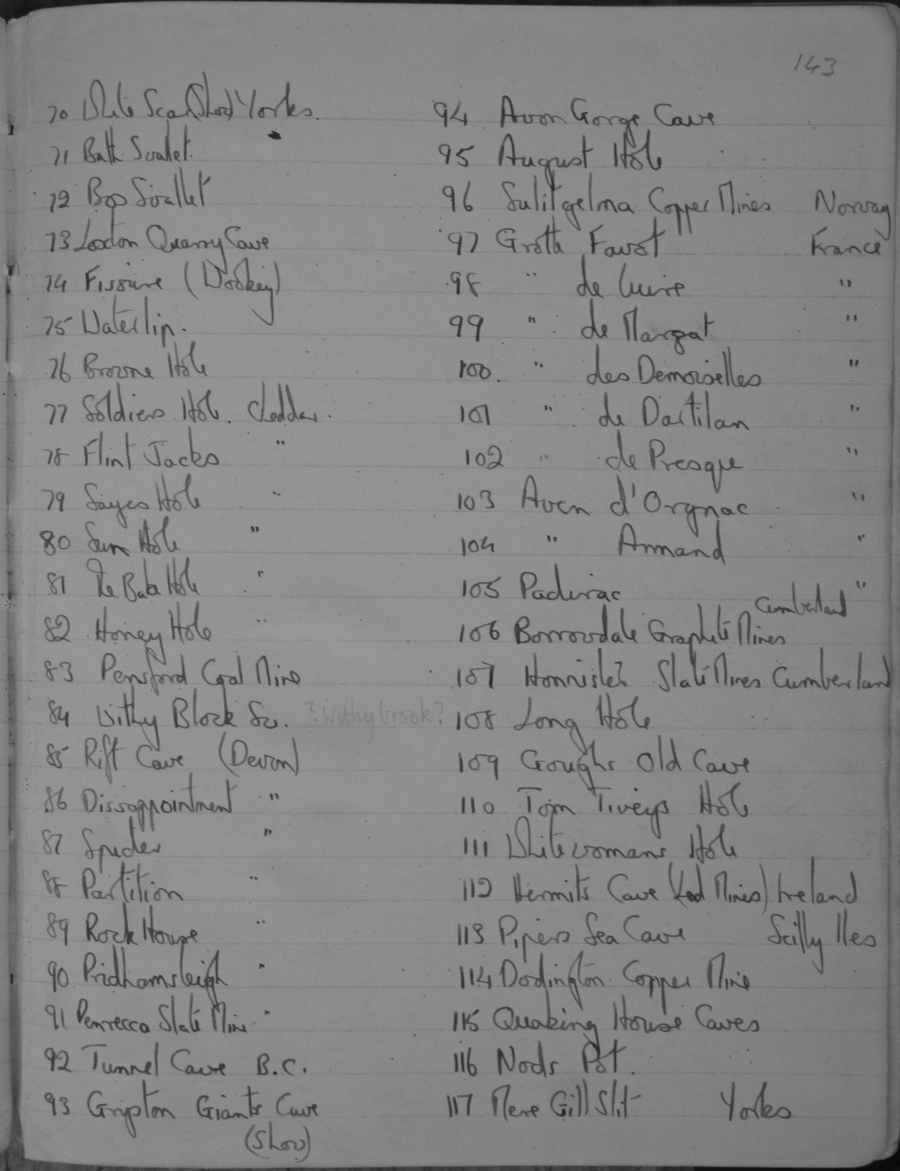 143
70 White Scar (Show) Yorks.
71 Bath Swallet.
72 Bos Swallet
73 Loxton Quarry Cave
74 Fissure (Dorkey)
75 Waterlip.
76 Browne Hole
77 Soldiers Hole. Cheddar.
78 Flint Jacks "
79 Sayes Hole "
80 Sun Hole "
81 The Bath Hole "
82 Honey Hole "
83 Pensford Coal Mine
84 Withy Block Sw. ?Withybrook?
85 Rift Cave (Devon)
86 Dissappointment "
87 Spider "
88 Partition "
89 Rock House "
90 Pridhamsleigh "
91 Penrecca Slate Mine "
92 Tunnel Cave B.C.
93 Gripton Giants Cave
(Show)
94 Avon Gorge Cave
95 August Hole
96 Sulitgelma Copper Mines Norway
97 Grotte Favot France
98 " de Luire "
99 " de Marzat "
100. " des Demoiselles "
101 " de Dartilan "
102 " de Presque "
103 Aven d'Orgnac "
104 " Armand "
105 Padirac "
106 Borrowdale Graphite Mines Cumberland
107 Honnister Slate Mines Cumberland
108 Long Hole
109 Goughs Old Cave
110 Tom Tiveys Hole
111 Whitewomans Hole
112 Hermits Cave (Lead Mines) Ireland
113 Pipers Sea Cave Scilly Iles
114 Dodington Copper Mine
115 Quaking House Caves
116 Nods Pot.
117 Mere Gill Slit Yorks